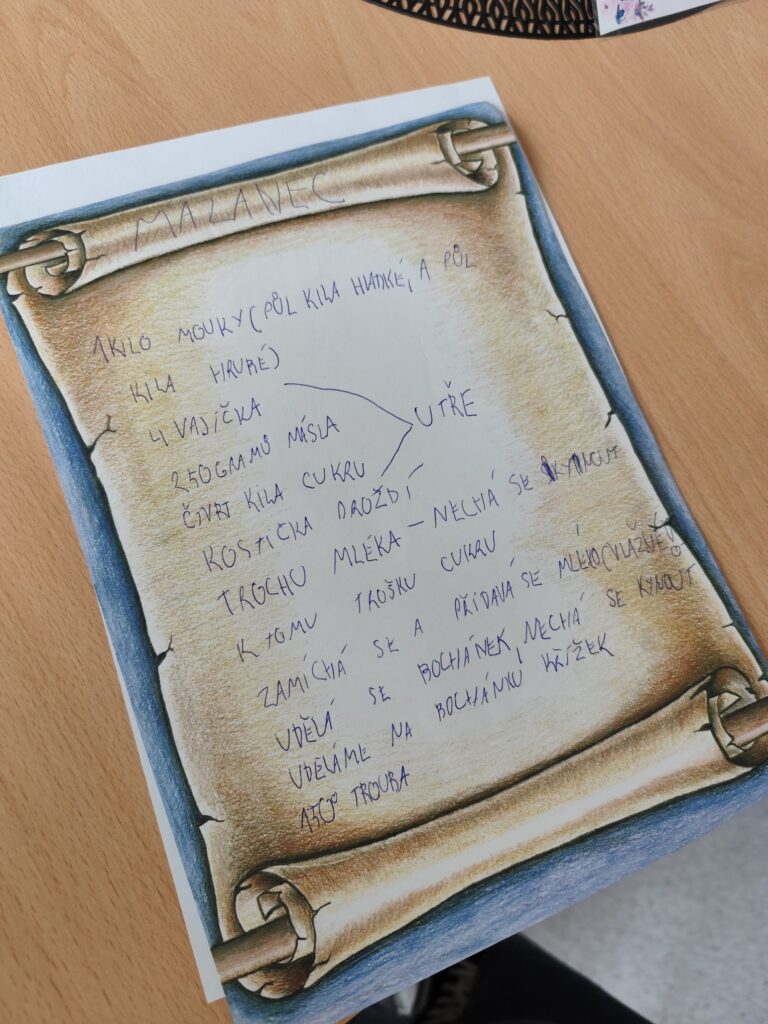 MAZANEC
1 KILO MOUKY (PŮL KILA HLADKÉ, A PŮL
KILA HRUBÉ)
4 VAJÍČKA
250 GRAMŮ MÁSLA
UTŘE
ČTVRT KILA CUKRU
KOSTIČKA DROŽDÍ
TROCHU MLÉKA - NECHÁ SE KYNOUT
K TOMU TROŠKU CUKRU
ZAMÍCHÁ SE A PŘIDAVÁ SE MLÉKO (VLAŽNÉ)
UDĚLÁ SE BOCHÁNEK, NECHÁ SE KYNOUT
UDĚLÁME NA BOCHÁNKU KŘÍŽEK
150° TROUBA